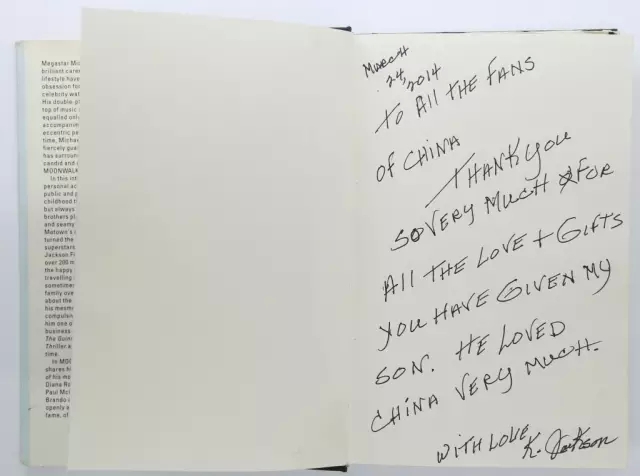 Megastar Mic
brilliant care
lifestyle have
obsession fo
celebrity wat
His double-pl
top of music
equalled only
accompanim
eccentric pe
time, Michae
fiercely gua
has surroun
candid and
MOONWALK
In this int
personal ac
public and p
childhood t
but always
brothers pl
and seamy
Motown's
turned the
superstars
Jackson Fi
over 200 m
the happy
travelling
sometimes
family ove
about the
his mesm
compulsi
him one o
business
The Guinn
Thriller a
time.
In MOO
shares hi
of his me
Diana Ro
Paul McC
Brando
openly a
fame, of
MARCH
24, 2014
TO All THE FANS
OF CHINA
THANK YOU
SO VERY MUCH FOR
All THE LOVE + GIFTS
YOU HAVE GIVEN MY
SON. HE LOVED
CHINA VERY MUCH.
WITH LOVE K. Jackson